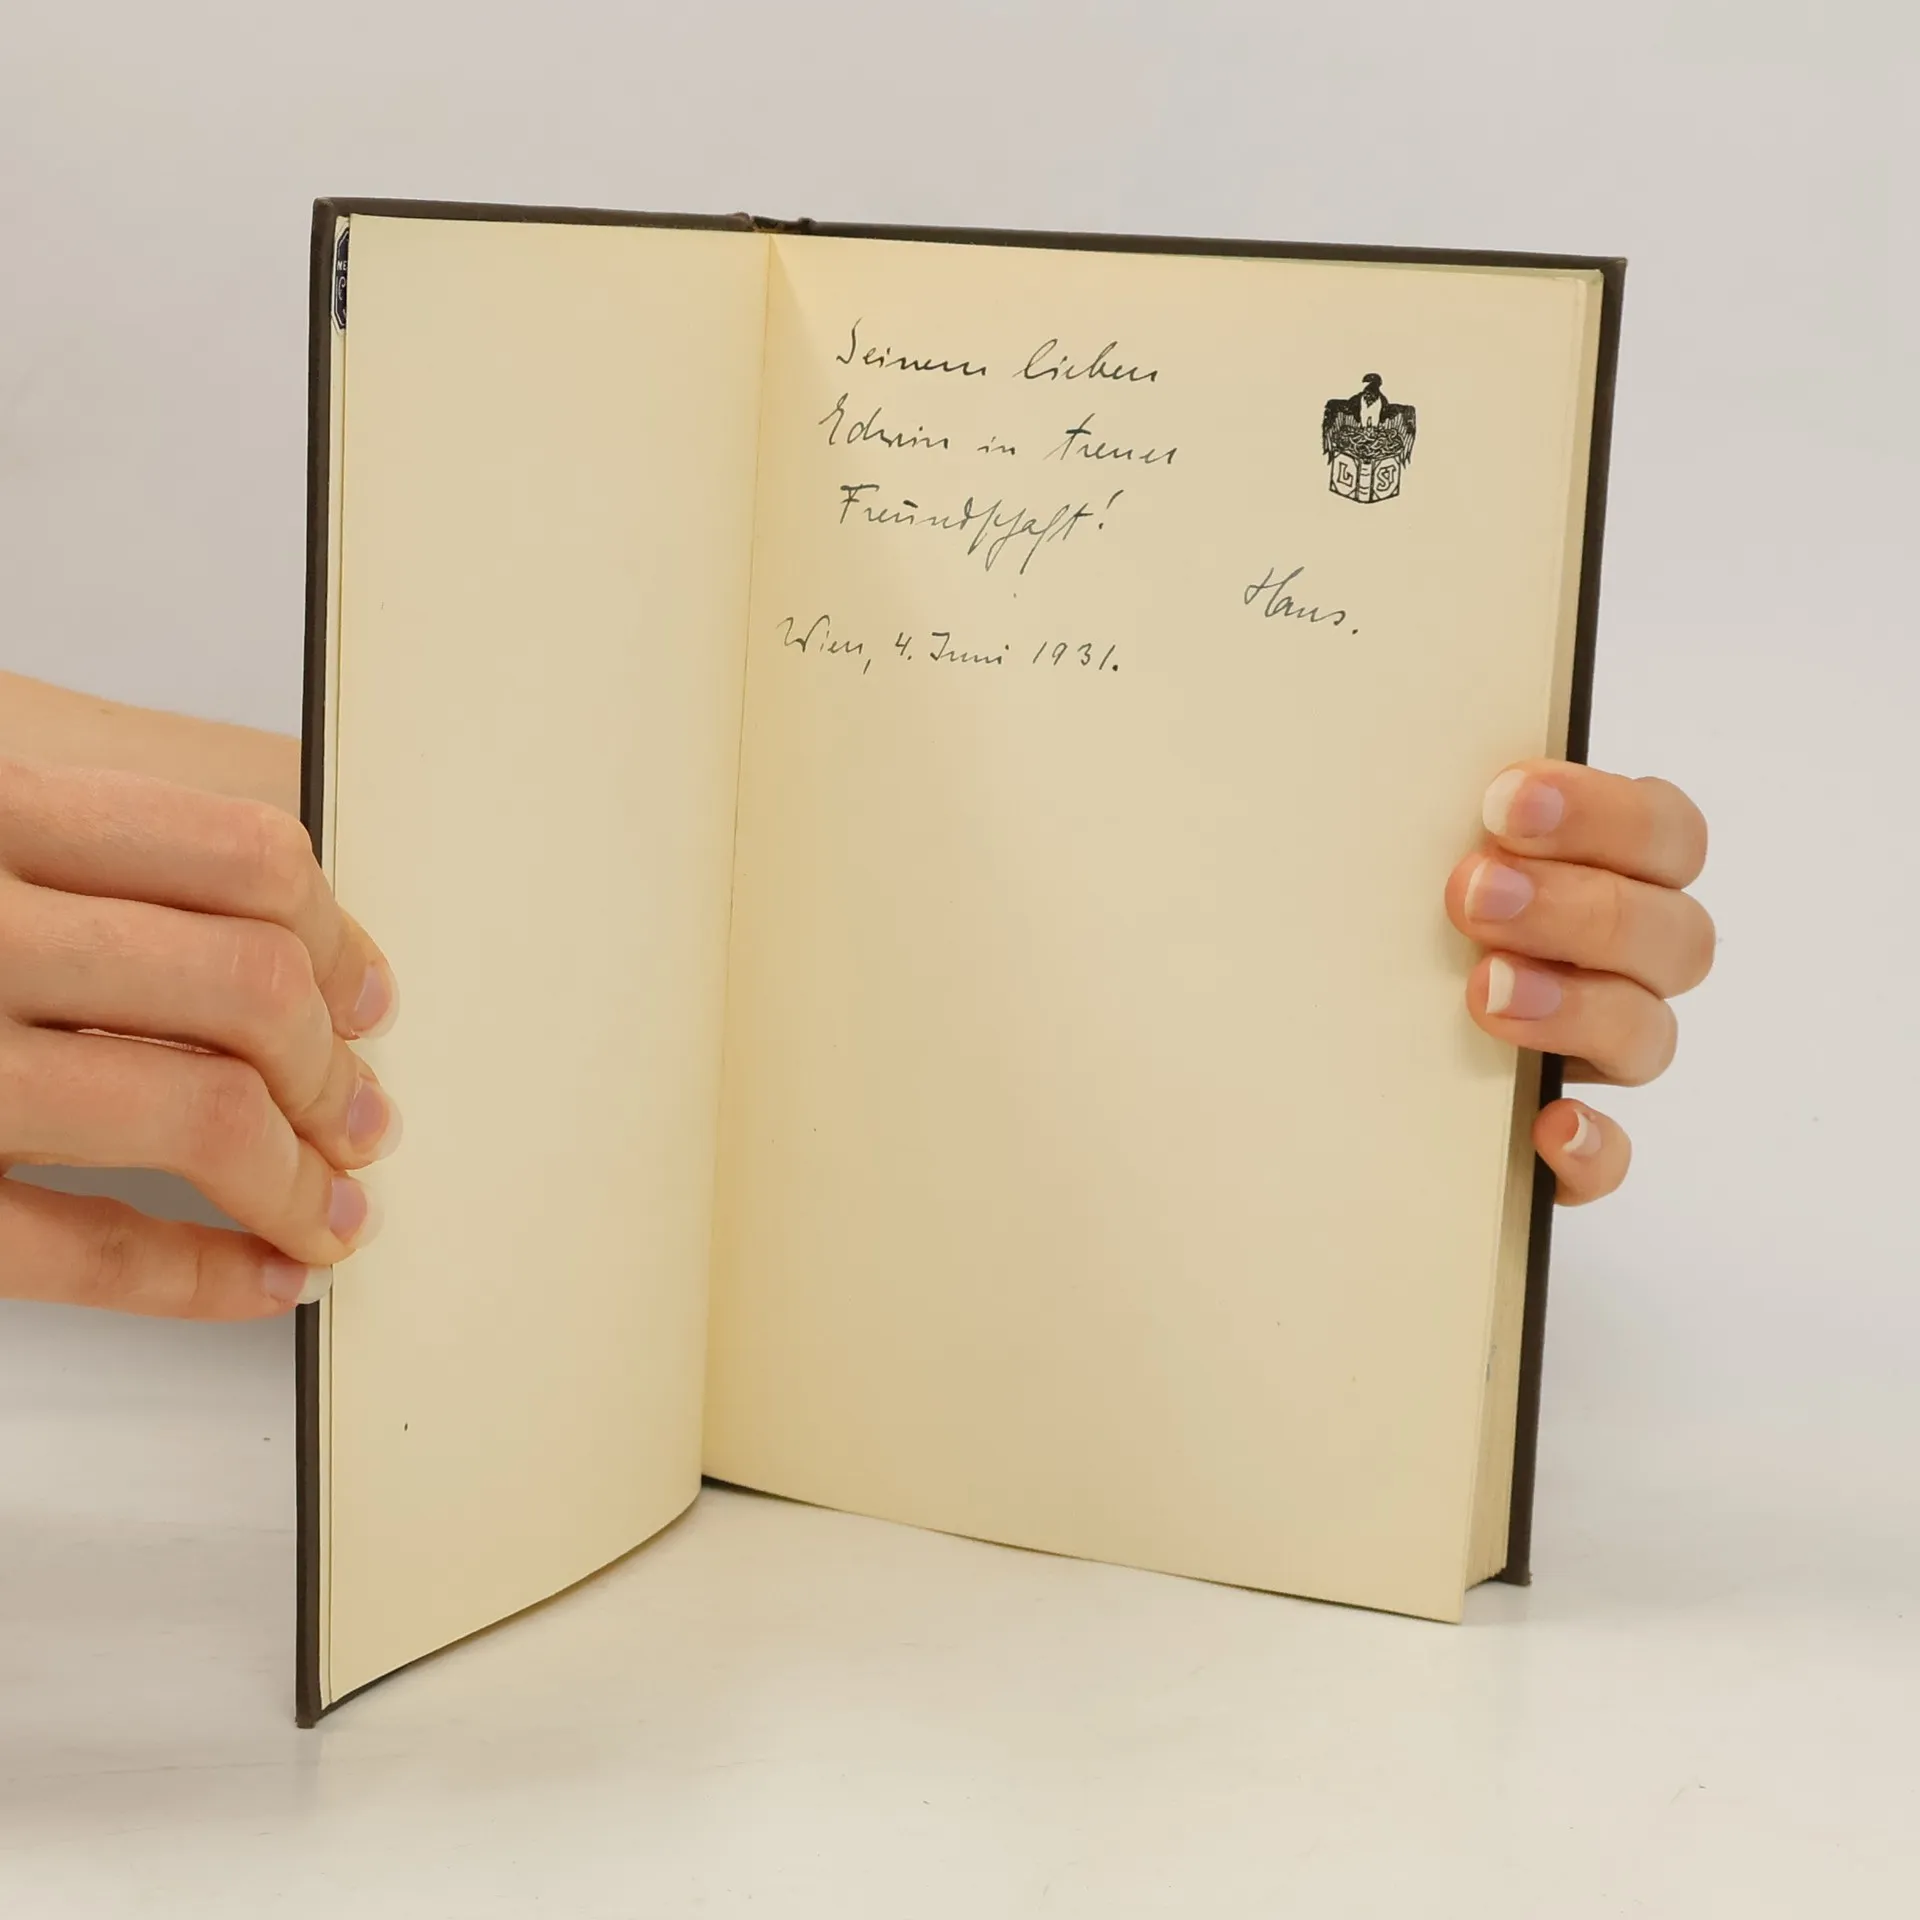 Seinem lieben
Edwin in treuer
Freundschaft!
Hans.
Wien, 4. Juni 1931.
L ST
NE